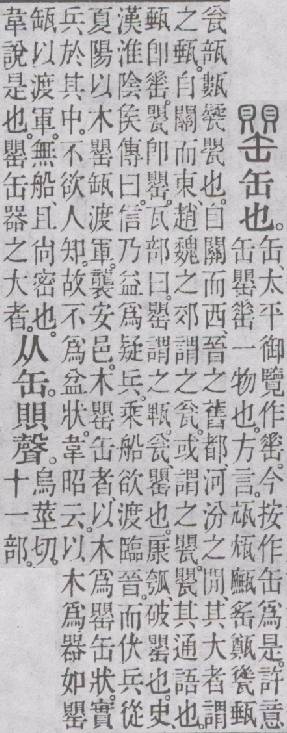 罌缶也。
缶、太平御覽作罃。今按作缶爲是。許意
缶罌罃一物也。方言。瓭㼚甒䍃甄㽀甀
瓮瓿甊㽀甖也。自關而西、晉之舊都、河汾之閒、其大者謂
之甀。自關而東、趙魏之郊謂之瓮。或謂之甖。甖其通語也。
甀卽罃。甖卽罌。瓦部曰。罌謂之瓺。瓮、罌也。康瓠、破罌也。史、
漢淮陰矦傳曰。信乃益爲疑兵。乘船欲渡臨晉。而伏兵從
夏陽以木罌缻渡軍。襲安邑。木罌缶者、以木爲罌缶狀。實
兵於其中。不欲人知。故不爲盆狀。韋昭云。以木爲器如罌
缻以渡軍。無船、且尙密也。
韋說是也。罌缶器之大者。
从缶賏聲。
烏莖切。
十一部。